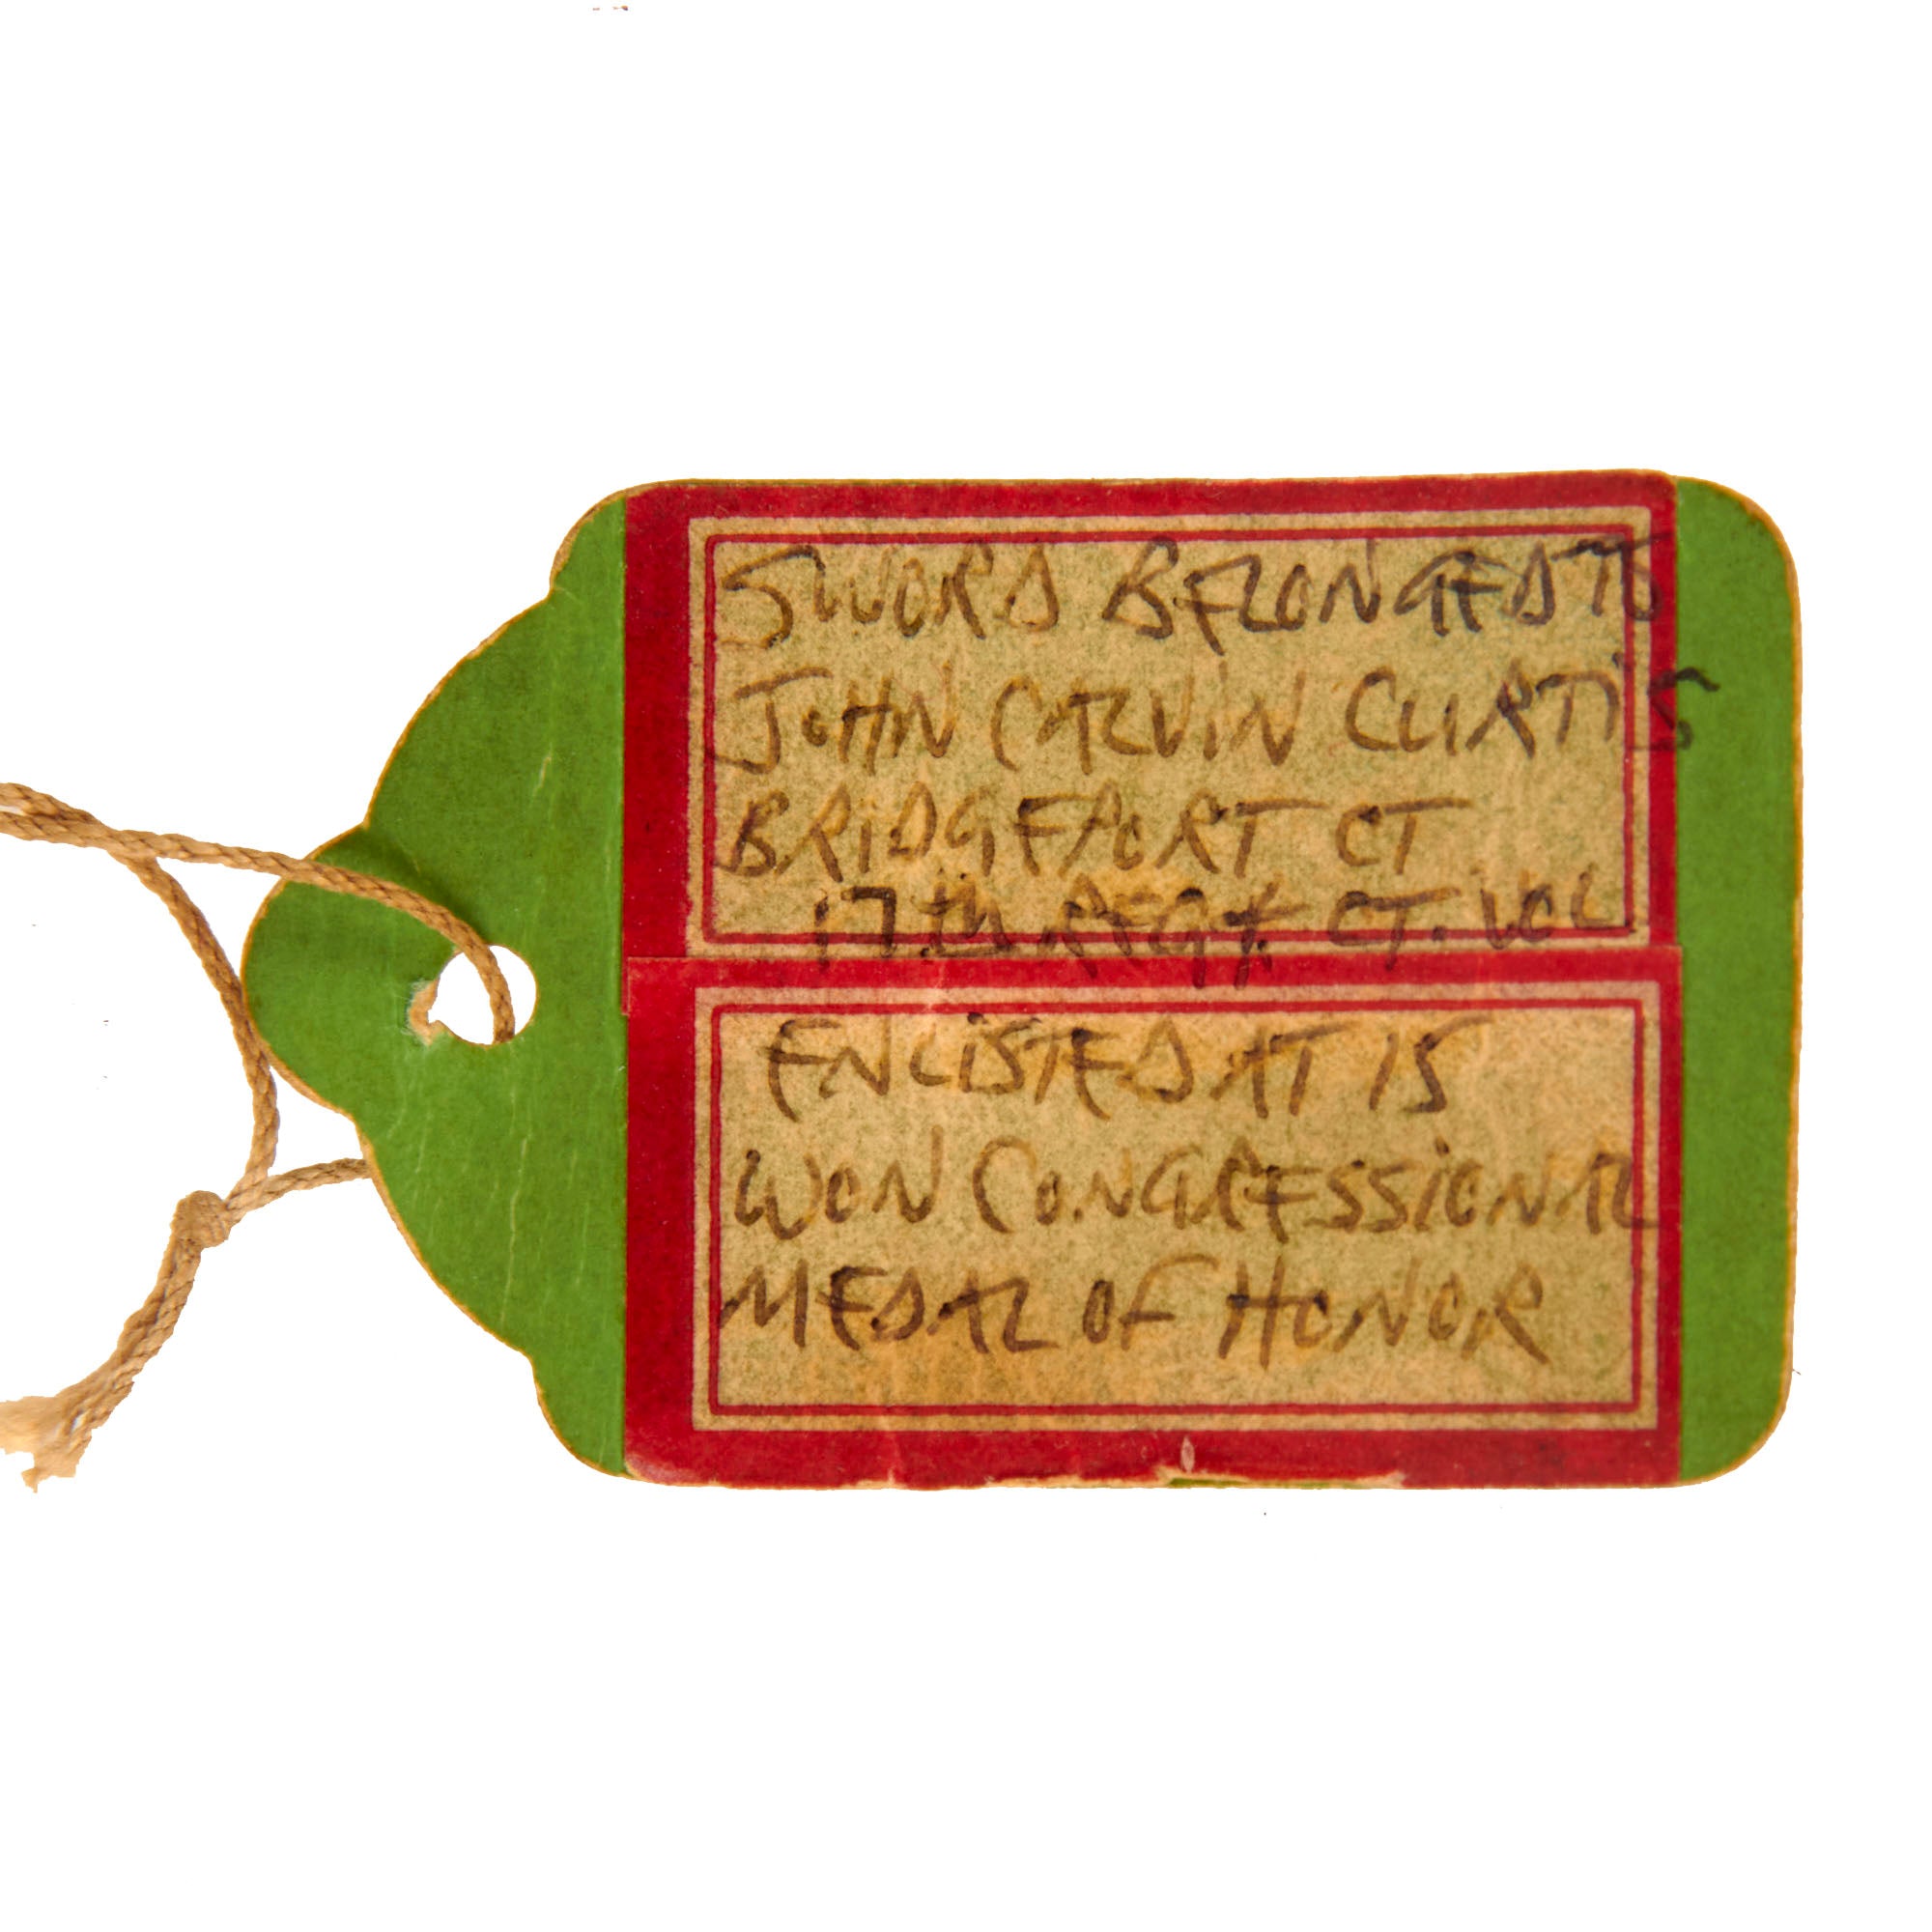 SWORD BELONGED TO
JOHN CALVIN CURTIS
BRIDGEPORT CT
17th REGt CT. VOL
ENLISTED AT 15
WON CONGRESSIONAL
MEDAL OF HONOR